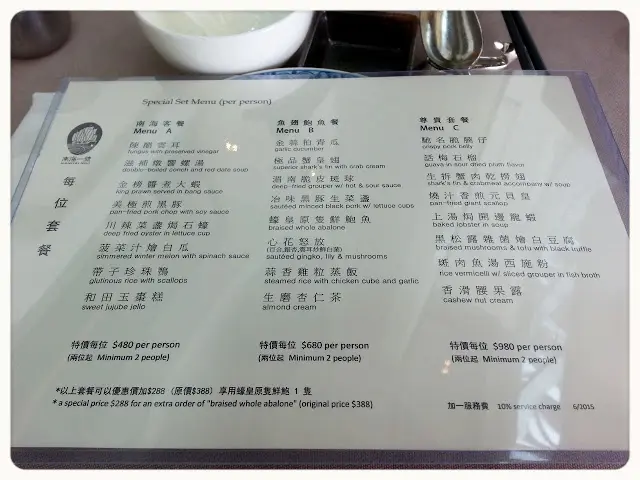 Special Set Menu (per person)
東海一號
每位套餐
南海客餐
Menu A
陳醋雲耳
fungus with preserved vinegar
滋補燉響螺湯
double-boiled conch and red date soup
金榜醬煮大蝦
king prawn served in bang sauce
美極煎黑豚
pan-fried pork chop with soy sauce
川辣菜盞焗石蠔
deep fried oyster in lettuce cup
菠菜汁燴白瓜
simmered winter melon with spinach sauce
帶子珍珠鷄
glutinous rice with scallops
和田玉棗糕
sweet jujube jello
特價每位 $480 per person
(兩位起 Minimum 2 people)
魚翅鮑魚餐
Menu B
金蒜拍青瓜
garlic cucumber
極品蟹皇翅
superior shark's fin with crab cream
湖南脆皮斑球
deep-fried grouper w/ hot & sour sauce
冶味黑豚生菜盞
sautéed minced black pork w/ lettuce cups
蠔皇原隻鮮鮑魚
braised whole abalone
心花怒放
sautéed gingko, lily & mushrooms
蒜香雞粒蒸飯
steamed rice with chicken cube and garlic
生磨杏仁茶
almond cream
特價每位 $680 per person
(兩位起 Minimum 2 people)
尊貴套餐
Menu C
馳名脆腩仔
crispy pork belly
話梅石榴
guava in sour dried plum flavor
生拆蟹肉乾撈翅
shark's fin & crabmeat accompany w/ soup
燒汁香煎元貝皇
pan-fried giant scallop
上湯焗開邊龍蝦
baked lobster in soup
黑松露雜菌燴白豆腐
braised mushrooms & tofu with black truffle
斑肉魚湯西施粉
rice vermicelli w/ sliced grouper in fish broth
香滑腰果露
cashew nut cream
特價每位 $980 per person
(兩位起 Minimum 2 people)
*以上套餐可以優惠價加$288（原價$388）享用蠔皇原隻鮮鮑 1 隻
* a special price $288 for an extra order of "braised whole abalone" (original price $388)
加一服務費 10% service charge 6/2015